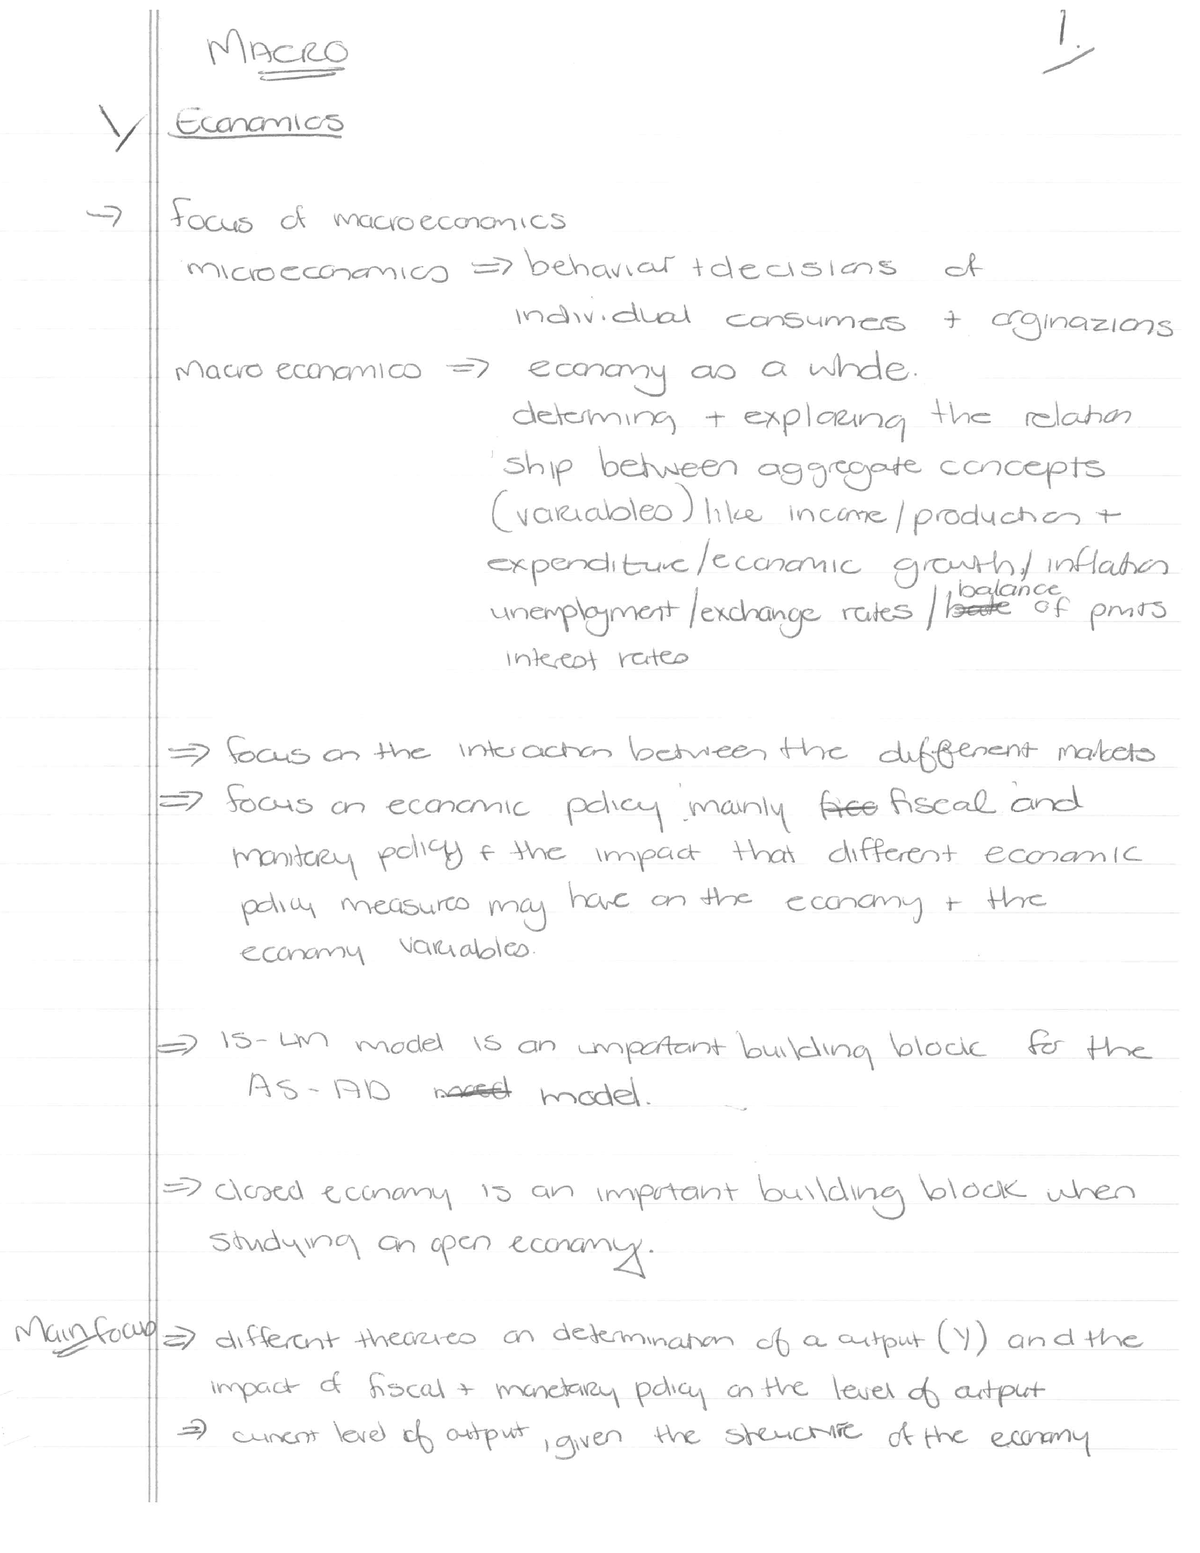 MACRO
1.
Economics
→ focus of macroeconomics
microeconomics ⇒ behavior + decisions of
individual consumers + orginazions
Macro economics ⇒ economy as a whole.
determing + exploring the relation
ship between aggregate concepts
(variables) like income/production +
expenditure/economic growth/inflation
balance
unemployment/exchange rates/ of pmts
interest rates
⇒ focus on the interaction between the different markets
⇒ focus on economic policy mainly fiscal and
monitery policy + the impact that different economic
policy measures may have on the economy + the
economy variables.
⇒ IS-LM model is an important building block for the
AS-AD model.
⇒ closed economy is an important building block when
studying an open economy.
Main focus ⇒ different theories on determination of a output (Y) and the
impact of fiscal + monetary policy on the level of output
⇒ current level of output, given the structure of the economy